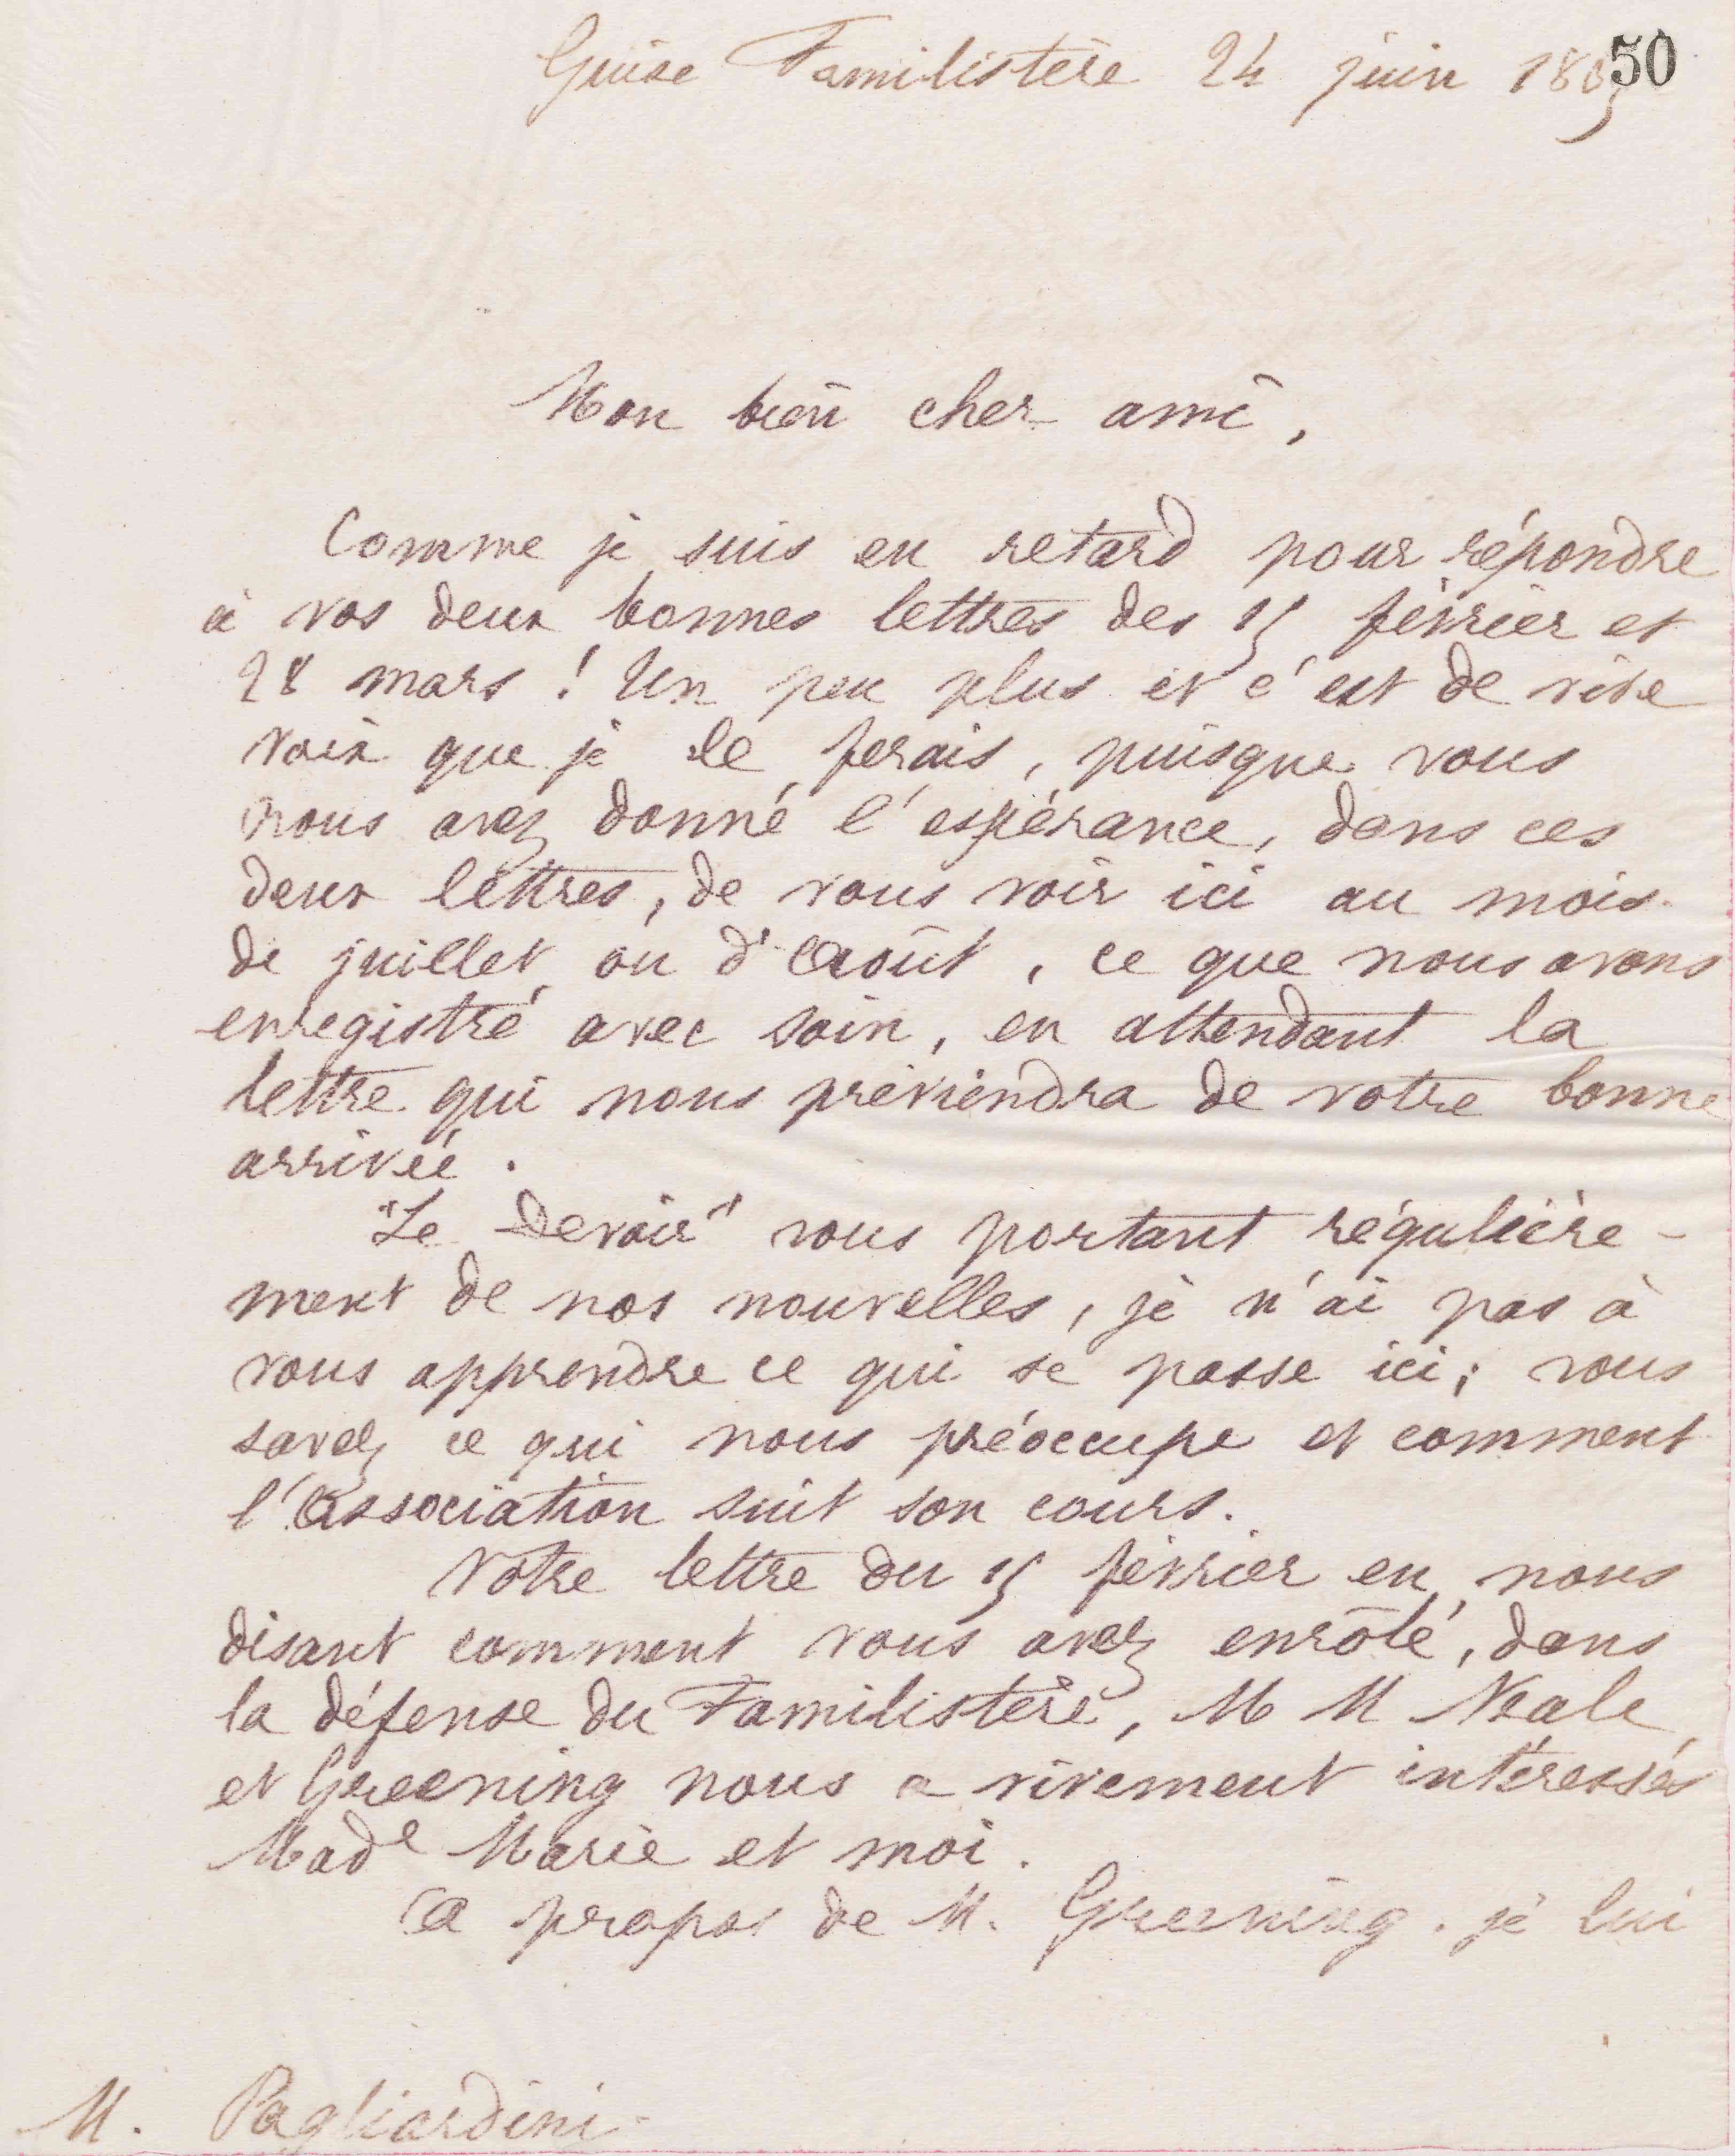 Guise Familistère 24 juin 1885
50
Mon bien cher ami,
Comme je suis en retard pour répondre
à vos deux bonnes lettres des 15 février et
28 mars ! Un peu plus et c'est de vive
voix que je le ferais, puisque vous
nous avez donné l'espérance, dans ces
deux lettres, de vous voir ici au mois
de juillet ou d'Août, ce que nous avons
enregistré avec soin, en attendant la
lettre qui nous préviendra de votre bonne
arrivée.
"Le Devoir" vous portant régulière-
ment de nos nouvelles, je n'ai pas à
vous apprendre ce qui se passe ici; vous
savez ce qui nous préoccupe et comment
l'Association suit son cours.
Votre lettre du 15 février en nous
disant comment vous avez enrôlé, dans
la défense du Familistère, M M Neale
et Greening nous a vivement intéressés
Made Marie et moi.
A propos de M. Greening, je lui
M. Pagliardini